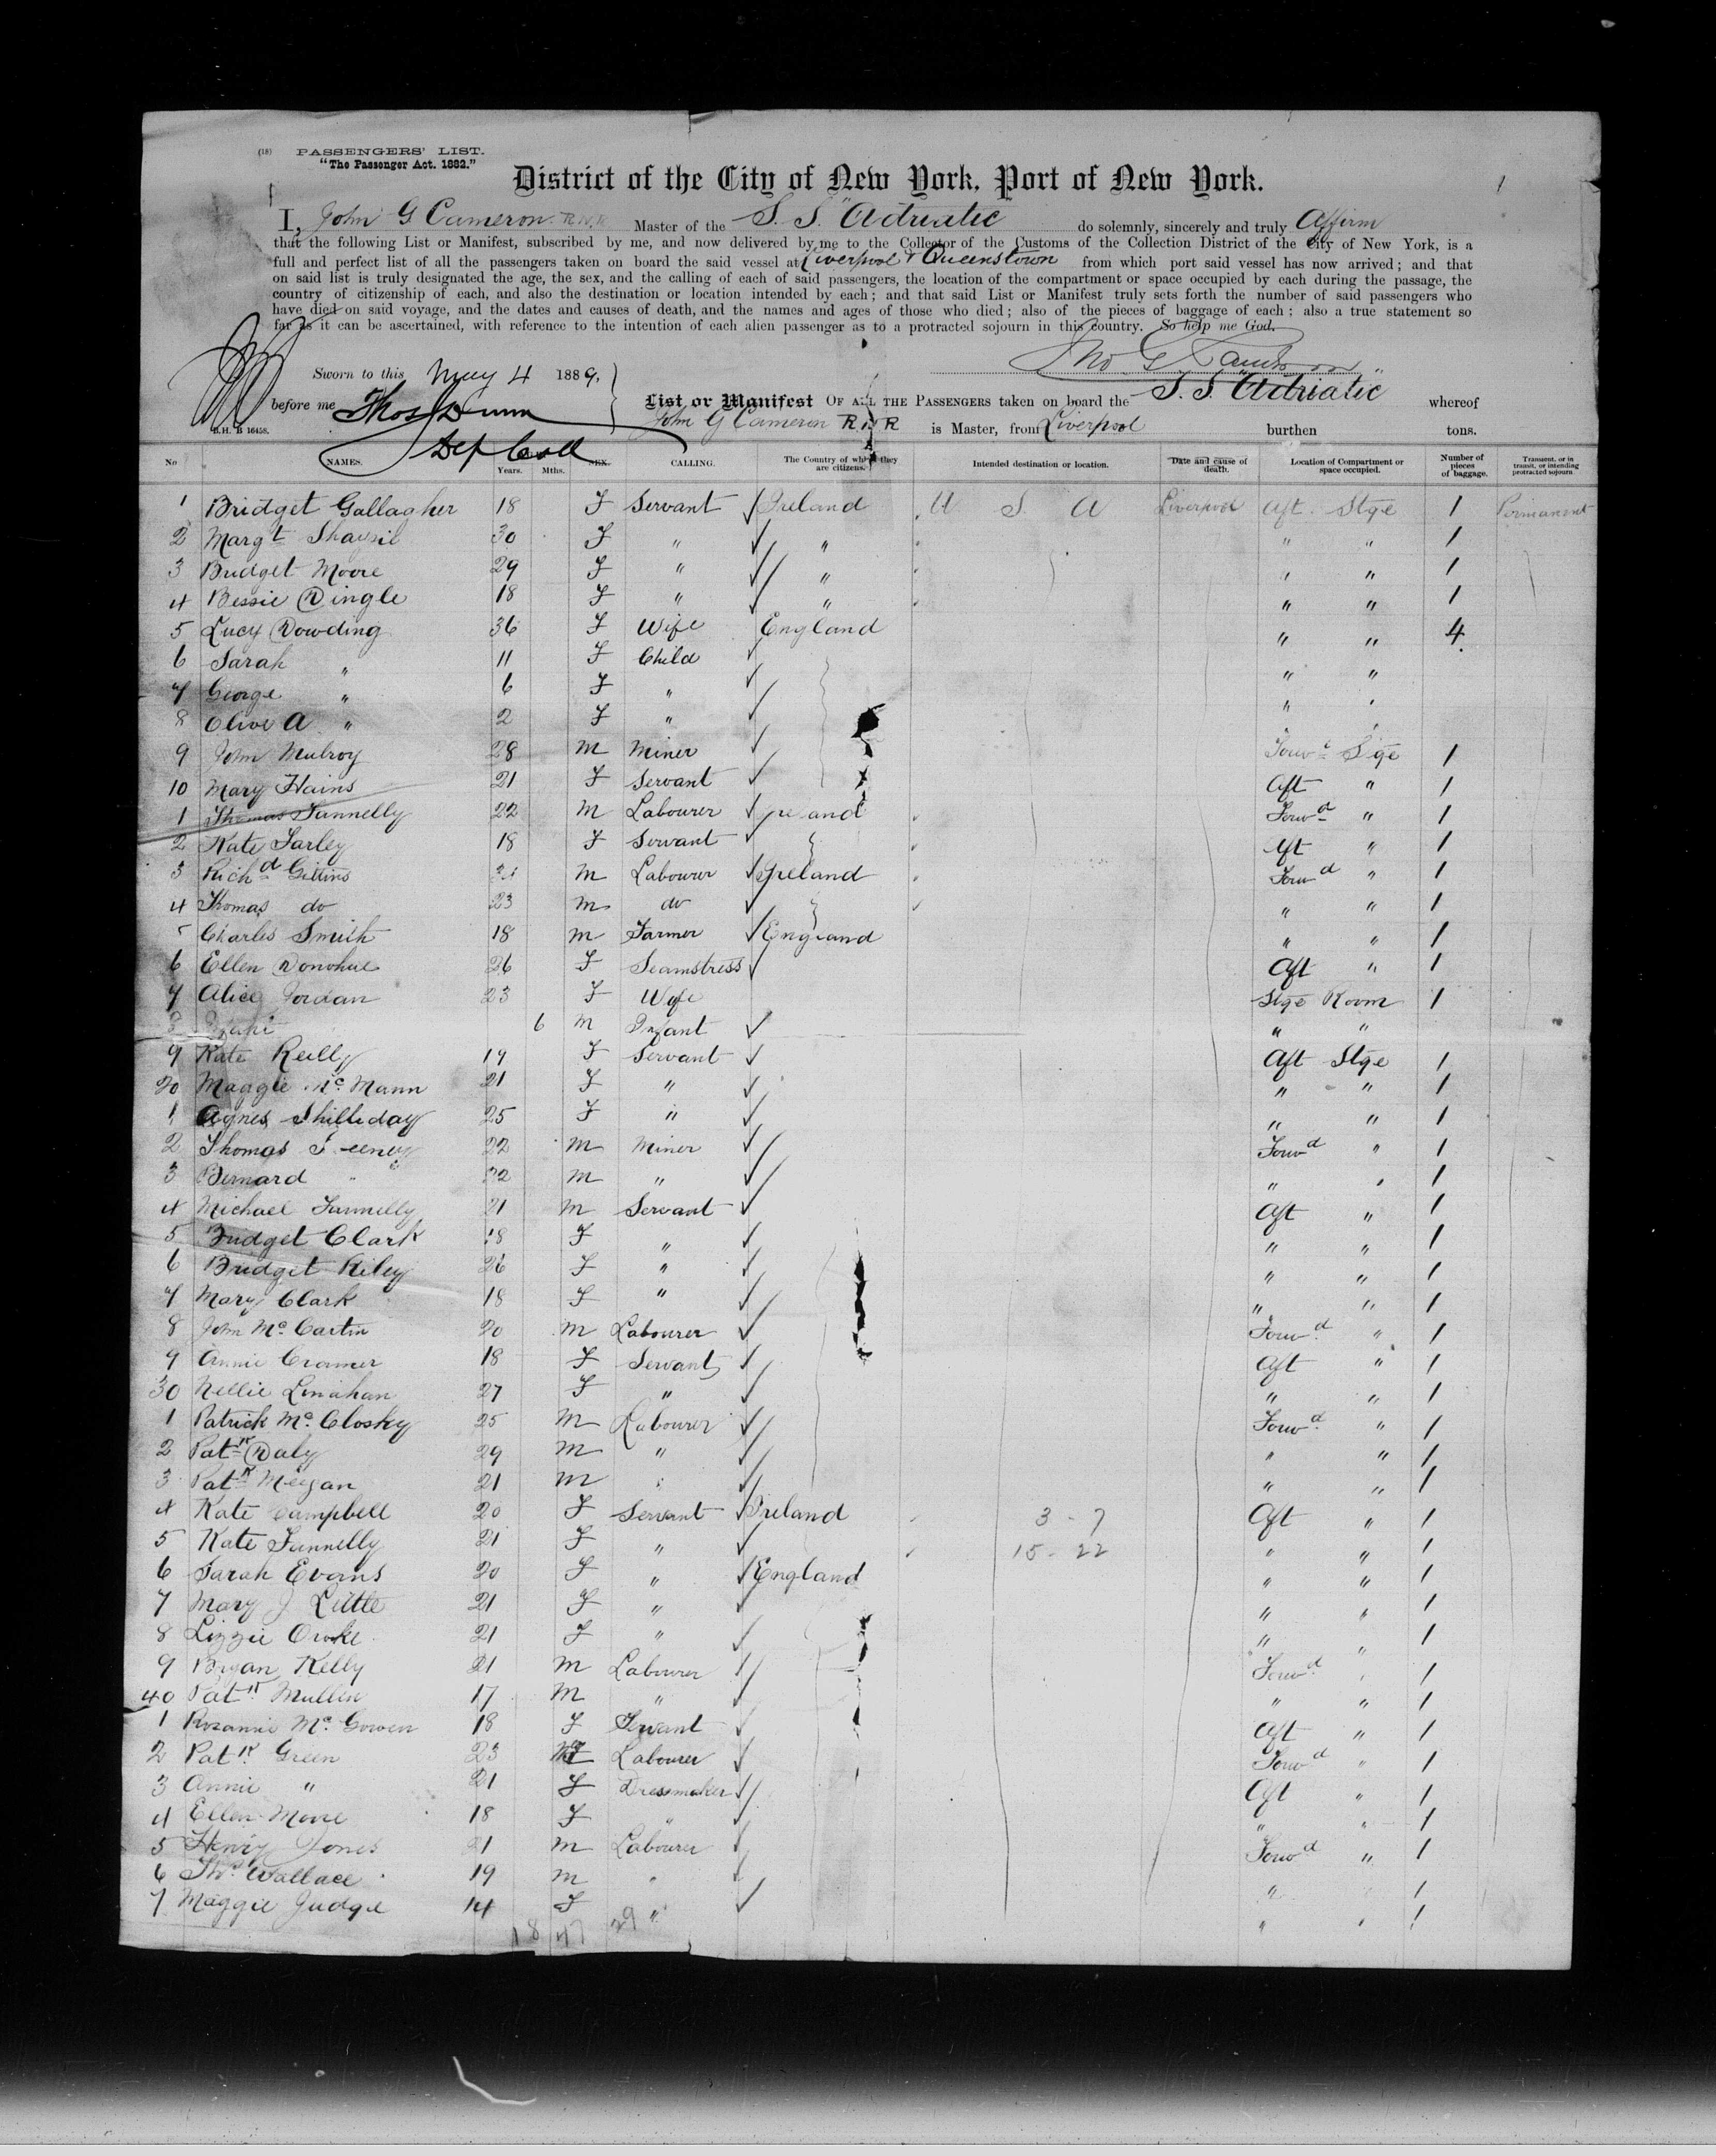 (18) PASSENGERS' LIST.
"The Passenger Act. 1882."
1
District of the City of New York, Port of New York.
I, John G Cameron R.N.R Master of the S. S. "Adriatic do solemnly, sincerely and truly Affirm
that the following List or Manifest, subscribed by me, and now delivered by me to the Collector of the Customs of the Collection District of the City of New York, is a
full and perfect list of all the passengers taken on board the said vessel at Liverpool & Queenstown from which port said vessel has now arrived; and that
on said list is truly designated the age, the sex, and the calling of each of said passengers, the location of the compartment or space occupied by each during the passage, the
country of citizenship of each, and also the destination or location intended by each; and that said List or Manifest truly sets forth the number of said passengers who
have died on said voyage, and the dates and causes of death, and the names and ages of those who died; also of the pieces of baggage of each; also a true statement so
far as it can be ascertained, with reference to the intention of each alien passenger as to a protracted sojourn in this country. So help me God.
Jno G Cameron
Sworn to this May 4 1889,
before me Thos Dunn
Dep Coll
B.H. B 16458.
List or Manifest OF ALL THE PASSENGERS taken on board the S. S. "Adriatic" whereof
John G Cameron R N R is Master, from Liverpool burthen tons.
No NAMES. Years. Mths. SEX. CALLING. The Country of which they are citizens. Intended destination or location. Date and cause of death. Location of Compartment or space occupied. Number of pieces of baggage. Transient, or in transit, or intending protracted sojourn.
1 Bridget Gallagher 18 F Servant Ireland U S A Liverpool Aft. Stge 1 Permanent
2 Margt 30 F " " " " 1
3 Bridget Moore 29 F " " " " 1
4 Bessie Dingle 18 F " " " " 1
5 Lucy Dowding 36 F Wife England " " 4
6 Sarah " 11 F Child " "
7 George " 6 F " " "
8 Olive A " 2 F "
9 John Mulroy 28 M Miner Forwd Stge 1
10 Mary Hains 21 F Servant Aft " 1
1 Thomas Fannelly 22 M Labourer Ireland Forwd " 1
2 Kate Farley 18 F Servant Aft " 1
3 Richd Gittins M Labourer Ireland Forwd " 1
4 Thomas do 23 M do " " 1
5 Charles Smith 18 M Farmer England " " 1
6 Ellen Donohue 26 F Seamstress Aft " 1
7 Alice Jordan 23 F Wife Stge Room 1
8 6 M Infant " "
9 Kate Reilly 19 F Servant Aft Stge 1
20 Maggie Mc Mann 21 F " " " 1
1 Agnes Shilliday 25 F " " " 1
2 Thomas Feeney 22 M Miner Forwd " 1
3 Bernard " 22 M " " " 1
4 Michael Fannelly 21 M Servant Aft " 1
5 Bridget Clark 18 F " " " 1
6 Bridget Riley 26 F " " " 1
7 Mary Clark 18 F " " " 1
8 John Mc Cartin 20 M Labourer Forwd " 1
9 Annie Cramer 18 F Servant Aft " 1
30 Nellie Linahan 27 F " " " 1
1 Patrick Mc Closky 25 M Labourer Forwd " 1
2 Patk Daly 29 M " " " 1
3 Patk Meegan 21 M " " " 1
4 Kate Campbell 20 F Servant Ireland 3 - 7 Aft " 1
5 Kate Fannelly 21 F " 15 - 22 " " 1
6 Sarah Evans 20 F " England " " 1
7 Mary J Little 21 F " " " 1
8 Lizzie 21 F " " " 1
9 Bryan Kelly 21 M Labourer Forwd " 1
40 Patk Mullin 17 M " " " 1
1 Rosannie Mc Gowen 18 F Servant Aft " 1
2 Patk Green 23 M Labourer Forwd " 1
3 Annie " 21 F Dressmaker Aft " 1
4 Ellen Moore 18 F " " " 1
5 Henry Jones 21 M Labourer Forwd " 1
6 Thos Wallace 19 M " " 1
7 Maggie Judge 14 F " " " 1
18 47 29